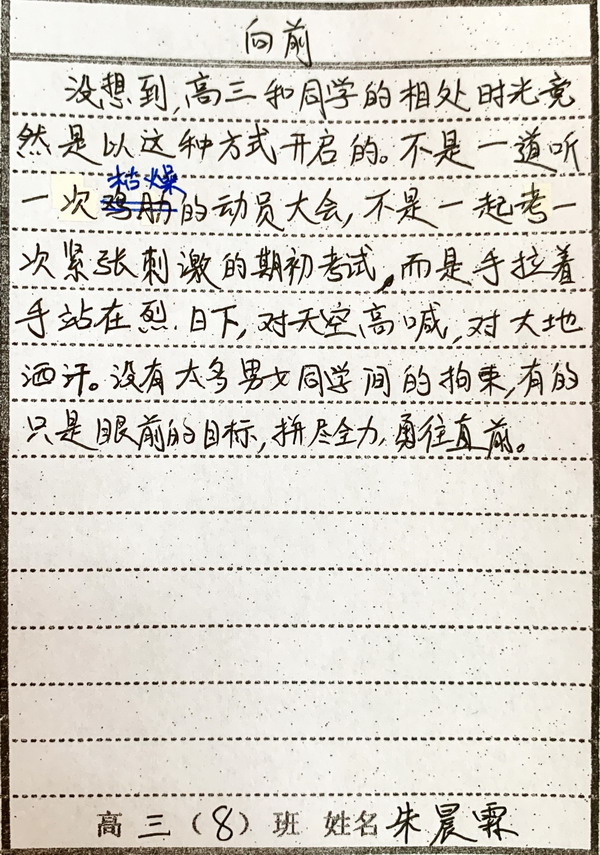 向前
没想到,高三和同学的相处时光竟
然是以这种方式开启的。不是一道听
枯燥
一次鸡肋的动员大会,不是一起考一
次紧张刺激的期初考试,而是手拉着
手站在烈日下,对天空高喊,对大地
洒汗。没有太多男女同学间的拘束,有的
只是眼前的目标,拼尽全力,勇往直前。
高三(8)班 姓名朱晨霖